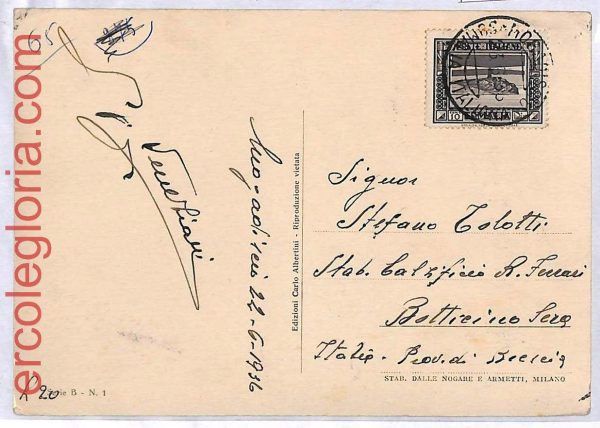 65
Venetiani
Mogadiscio 22-6-1936
Edizioni Carlo Albertini - Riproduzione vietata
POSTE ITALIANE
SOMALIA
10
Signor
Stefano Tolotti
Stab. Calzificio R. Ferrari
Botticino Sera
Italia - Prov. di Brescia
STAB. DALLE NOGARE E ARMETTI, MILANO
Serie B - N. 1
20
ercolegloria.com